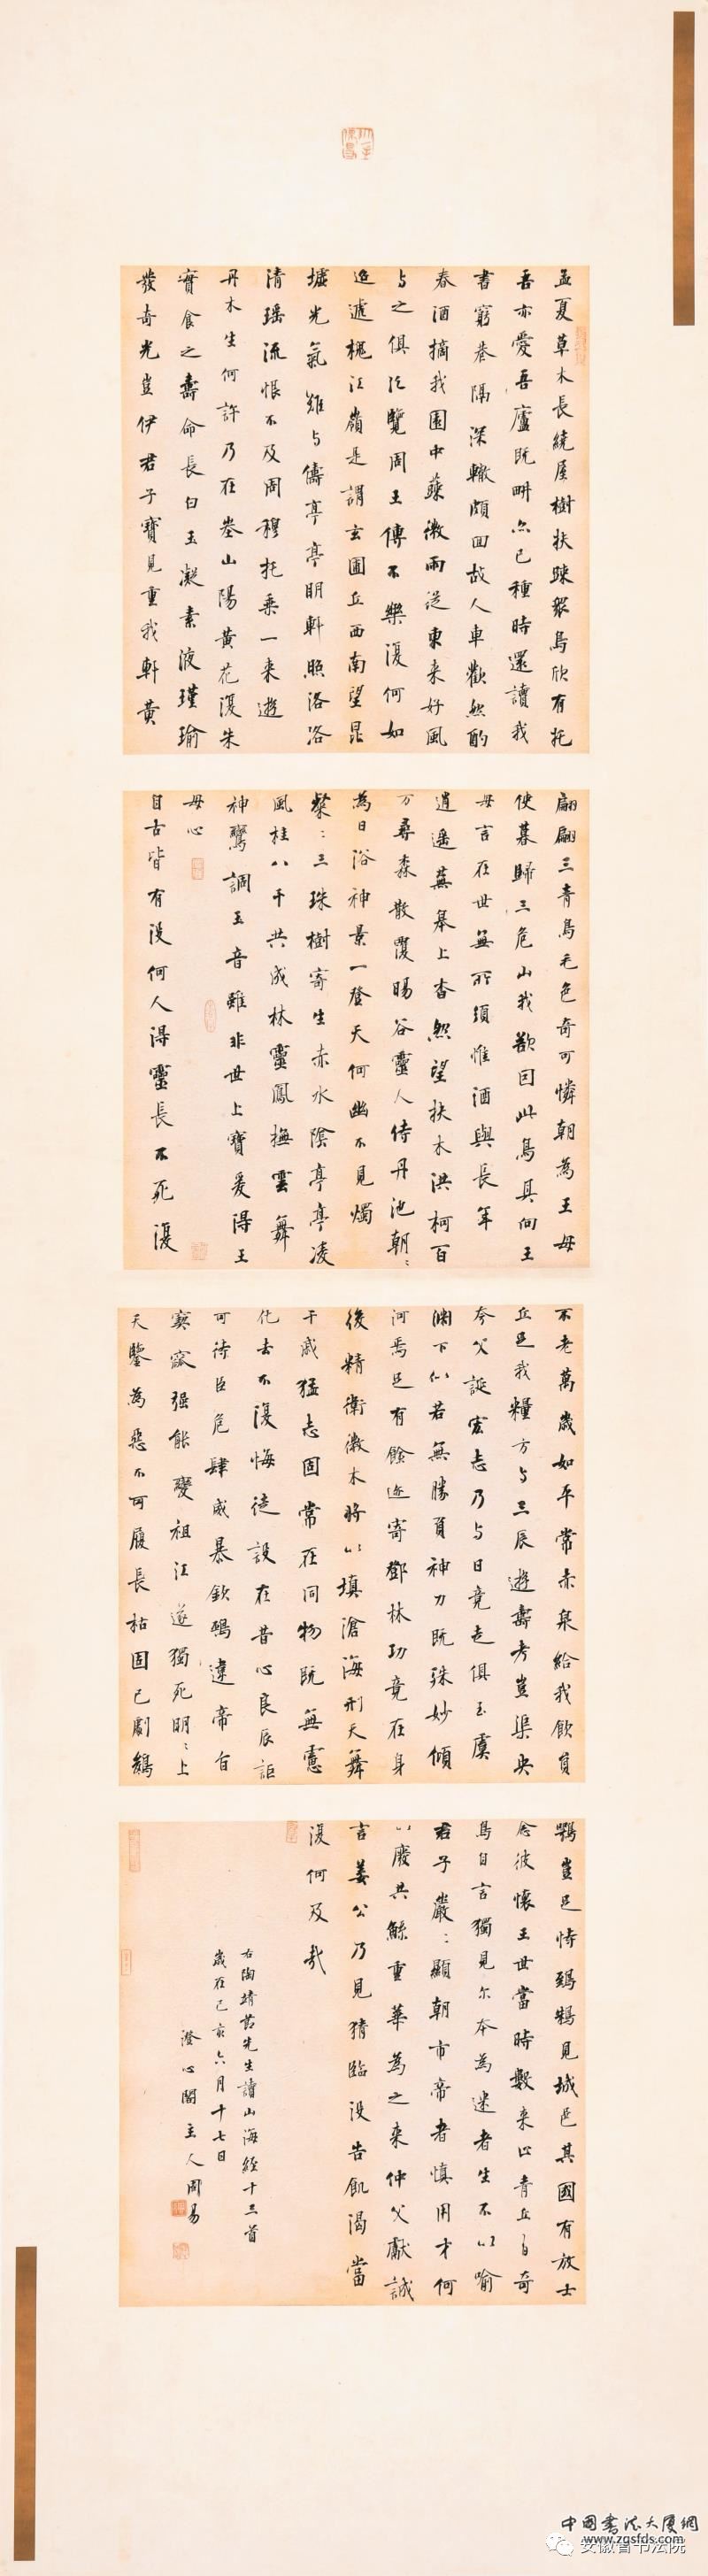 孟夏草木長繞屋樹扶疎眾鳥欣有托
吾亦愛吾廬既畊亦已種時還讀我
書窮巷隔深轍頗回故人車歡然酌
春酒摘我園中蔬微雨從東来好風
与之俱汎覽周王傳不樂復何如
迢遞槐江嶺是謂玄圃丘西南望昆
墟光氣難与儔亭亭明軒照洛洛
清瑤流恨不及周穆托乘一来遊
丹木生何許乃在峚山陽黃花復朱
實食之壽命長白玉凝素液瑾瑜
發奇光豈伊君子寶見重我軒黃
翩翩三青鳥毛色奇可憐朝為王母
使暮歸三危山我欲因此鳥具向王
母言在世無所須惟酒與長年
逍遙蕪皋上杳然望扶木洪柯百
万尋森散覆暘谷靈人侍丹池朝:
為日浴神景一登天何幽不見燭
粲:三珠樹寄生赤水陰亭亭凌
風桂八干共成林靈鳳撫雲舞
神鸞調玉音雖非世上寶爰得王
母心
自古皆有沒何人得靈長不死復
不老萬歲如平常赤泉給我飲員
丘足我糧方与三辰遊壽考豈渠央
夸父誕宏志乃与日竟走俱至虞
淵下似若無勝負神力既殊妙傾
河焉足有餘迹寄鄧林功竟在身
後精衛微木將以填滄海刑天舞
干戚猛志固常在同物既無慮
化去不復悔徒設在昔心良辰詎
可待臣危肆威暴欽䲹違帝旨
窫窳强能變祖江遂獨死明:上
天鑒為惡不可履長枯固已劇鵕
鶚豈足恃鵄鴸見城邑其國有放士
念彼懷王世當時數来止青丘有奇
鳥自言獨見尔本為迷者生不以喻
君子巖:顯朝市帝者慎用才何
以廢共鯀重華為之来仲父獻誠
言姜公乃見猜臨没告飢渴當
復何及哉
右陶靖節先生讀山海經十三首
歲在己亥六月十七日
澄心閣主人周易
中國書法大厦網
www.zgsfds.com
安徽省书法院